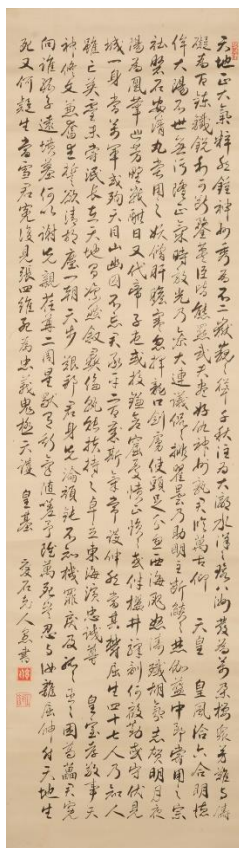 天地正大氣粹然鍾神州秀為不二嶽巍々聳千秋注為大瀛水洋々環八洲發為萬朶櫻衆芳難與儔
凝為百鍊鐵鋭利可斷鍪藎臣皆熊羆武夫盡好仇神州孰君臨萬古仰 天皇 皇風洽六合明徳
侔大陽不世無污隆正氣時放光乃參大連議侃々排瞿曇乃助明主斷燄々焚伽藍中郎嘗用之宗
社磐石安清丸嘗用之妖僧肝膽寒忽揮龍口劍虜使頭足分忽起西海颶怒濤殲胡氛志賀明月夜
陽為鳳輦巡芳野戰酣日又代帝子屯或投鎌倉窟憂憤正愪々或伴櫻井驛遺訓何殷勤或守伏見
城一身當萬軍或殉天目山幽囚不忘君承平二百歳斯氣常獲伸然當其鬱屈生四十七人乃知人
雖亡英靈未嘗泯長在天地間凛然敍彜倫孰能扶持之卓立東海濱忠誠尊 皇室孝敬事天
神修文兼奮武誓欲清胡塵一朝天步艱邦君身先淪頑鈍不知機罪戾及孤臣孤臣困葛藟君冤
向誰陳孤子遠墳墓何以謝先親荏苒二周星獨有斯氣隨嗟予雖萬死豈忍與汝離屈伸付天地生
死又何疑生當雪君冤復見張四維死為忠義鬼極天護 皇基
石老人書